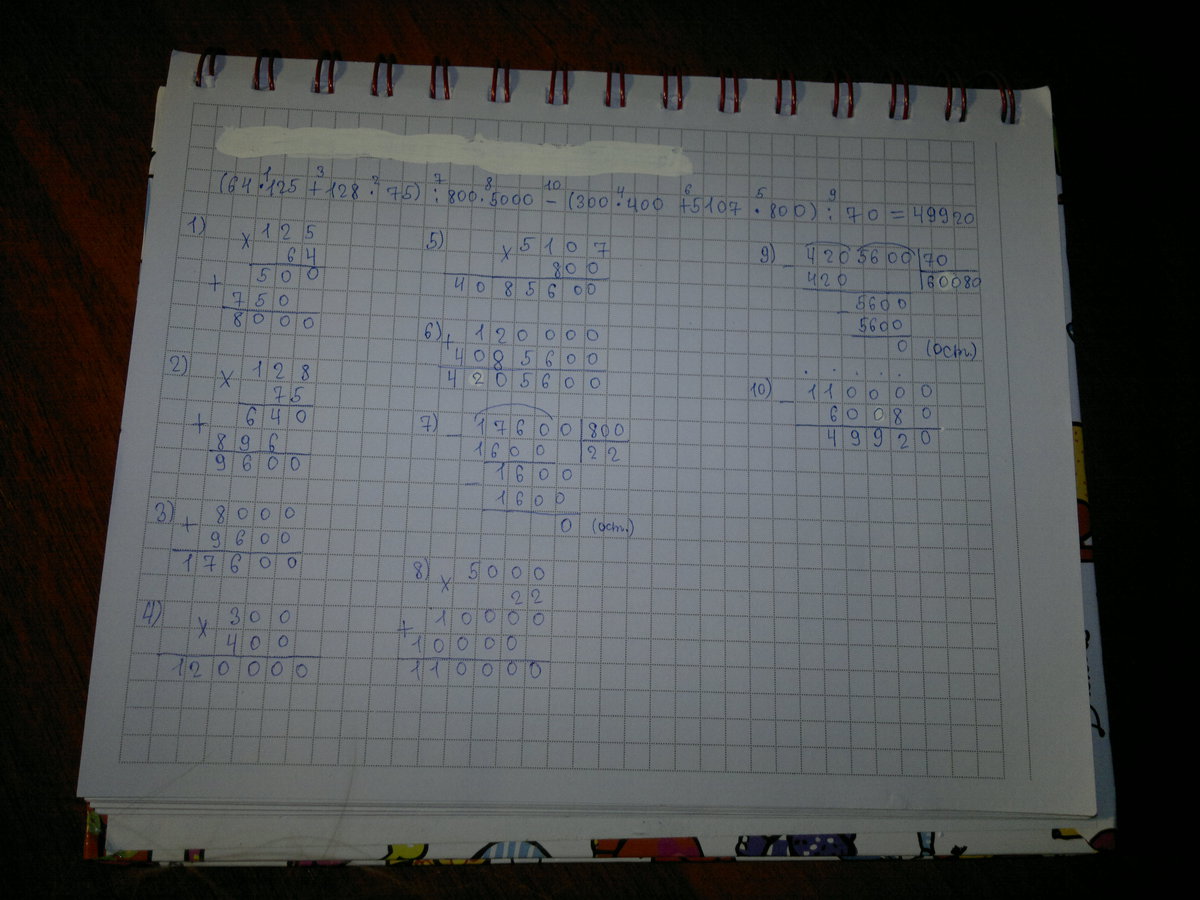 1 3 2 7 8 10 4 6 5 9
(64·125+128·75):800·5000-(300·400+5107·800):70=49920
1)
×125
64
+ 500
750
8000
2)
×128
75
+ 640
896
9600
3)
+ 8000
9600
17600
4)
×300
400
120000
5)
×5107
800
4085600
6)
+ 120000
4085600
4205600
7)
- 17600 | 800
1600 | 22
- 1600
1600
0 (ост.)
8)
×5000
22
+ 10000
10000
110000
9)
- 4205600 | 70
420 | 60080
- 5600
5600
0 (ост.)
10)
- 110000
60080
49920